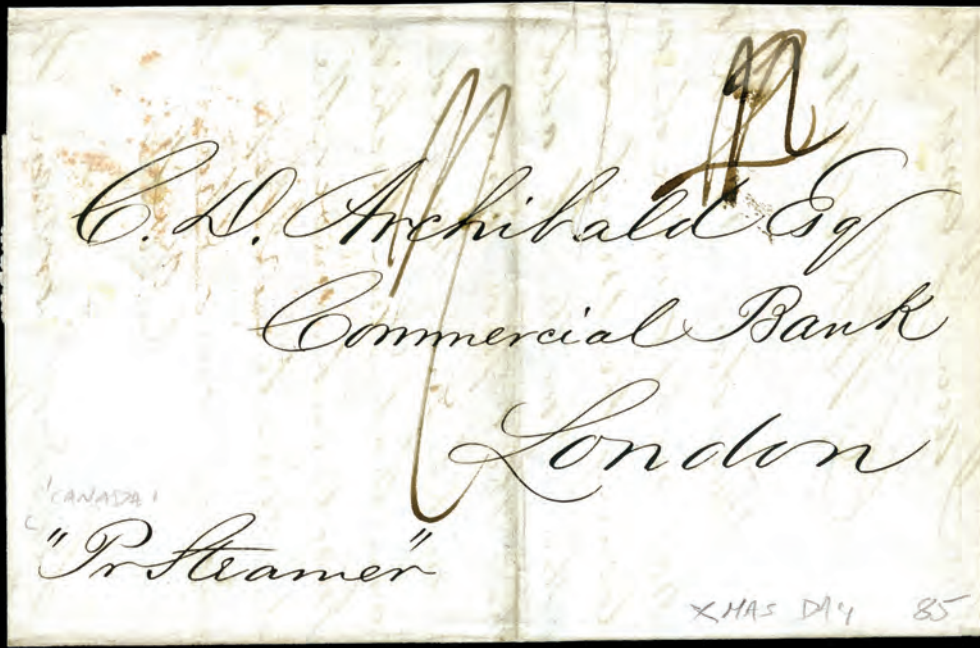 C. D. Archibald Esq
Commercial Bank
London
'CANADA'
"Pr Steamer"
XMAS DAY 85